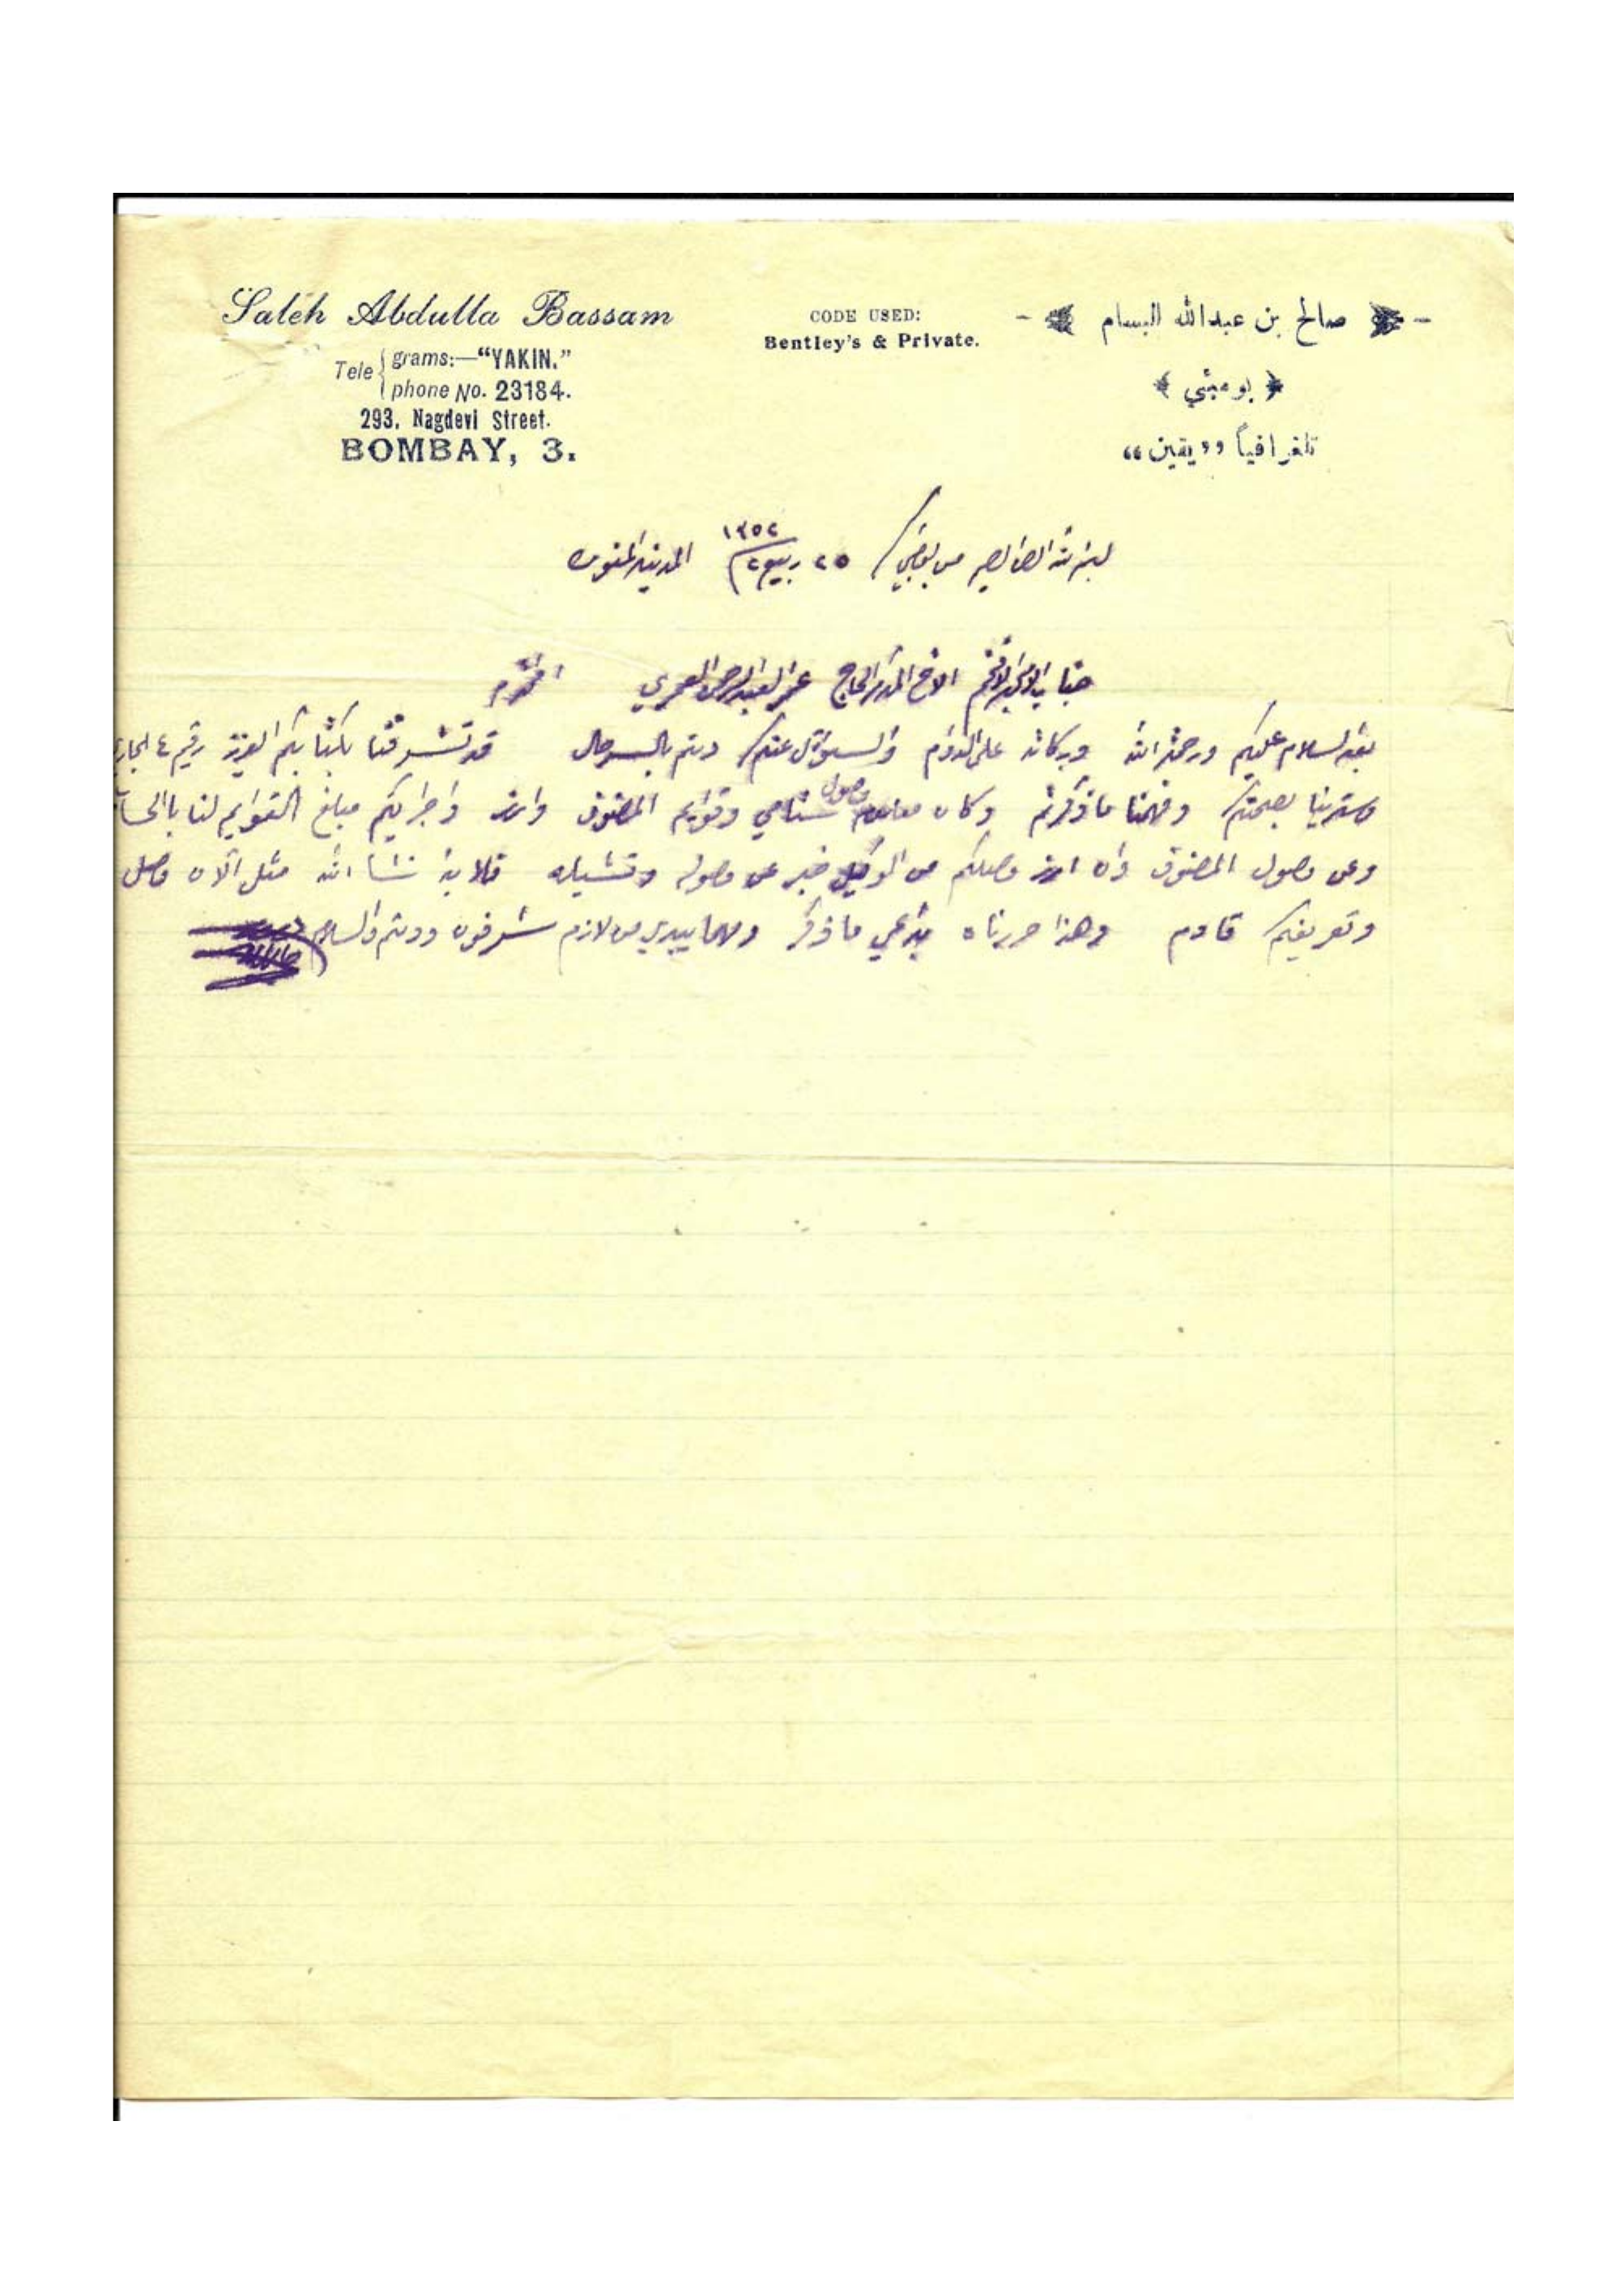 Saleh Abdulla Bassam
Tele grams:—“YAKIN.”
phone No. 23184.
293, Nagdevi Street.
BOMBAY, 3.
CODE USED:
Bentley's & Private.
صالح بن عبدالله البسام
بومبئي
تلغرافياً «يقين»
من بمبي ٢٥ ربيع٢ ١٣٥٢ المدينة المنوره
جناب الامجد الافخم الاخ المكرم الحاج عمر العبدالرحمن العمري المحترم
بعد السلام عليكم ورحمة الله وبركاته على الدوام والسؤال عنكم دمتم بالسرحال قد تشرفنا بكتابكم العزيز رقيم ٤ الجاري
وسرينا بصحتكم وفهمنا ماذكرتم وكان معلوم وصول وقوايم المضنون وارز واجرايكم مبلغ القوايم لنا باالحساب
وعن وصول المضنون وان ارز وصلكم من الوكيل خبر عن وصوله وتشيله فلابد نشاالله مثل الآن وصل
وتعريفكم قادم وهذا حررناه بداعي ماذكر ومهما يبدي من لازم شرفون ودمتم والسلام